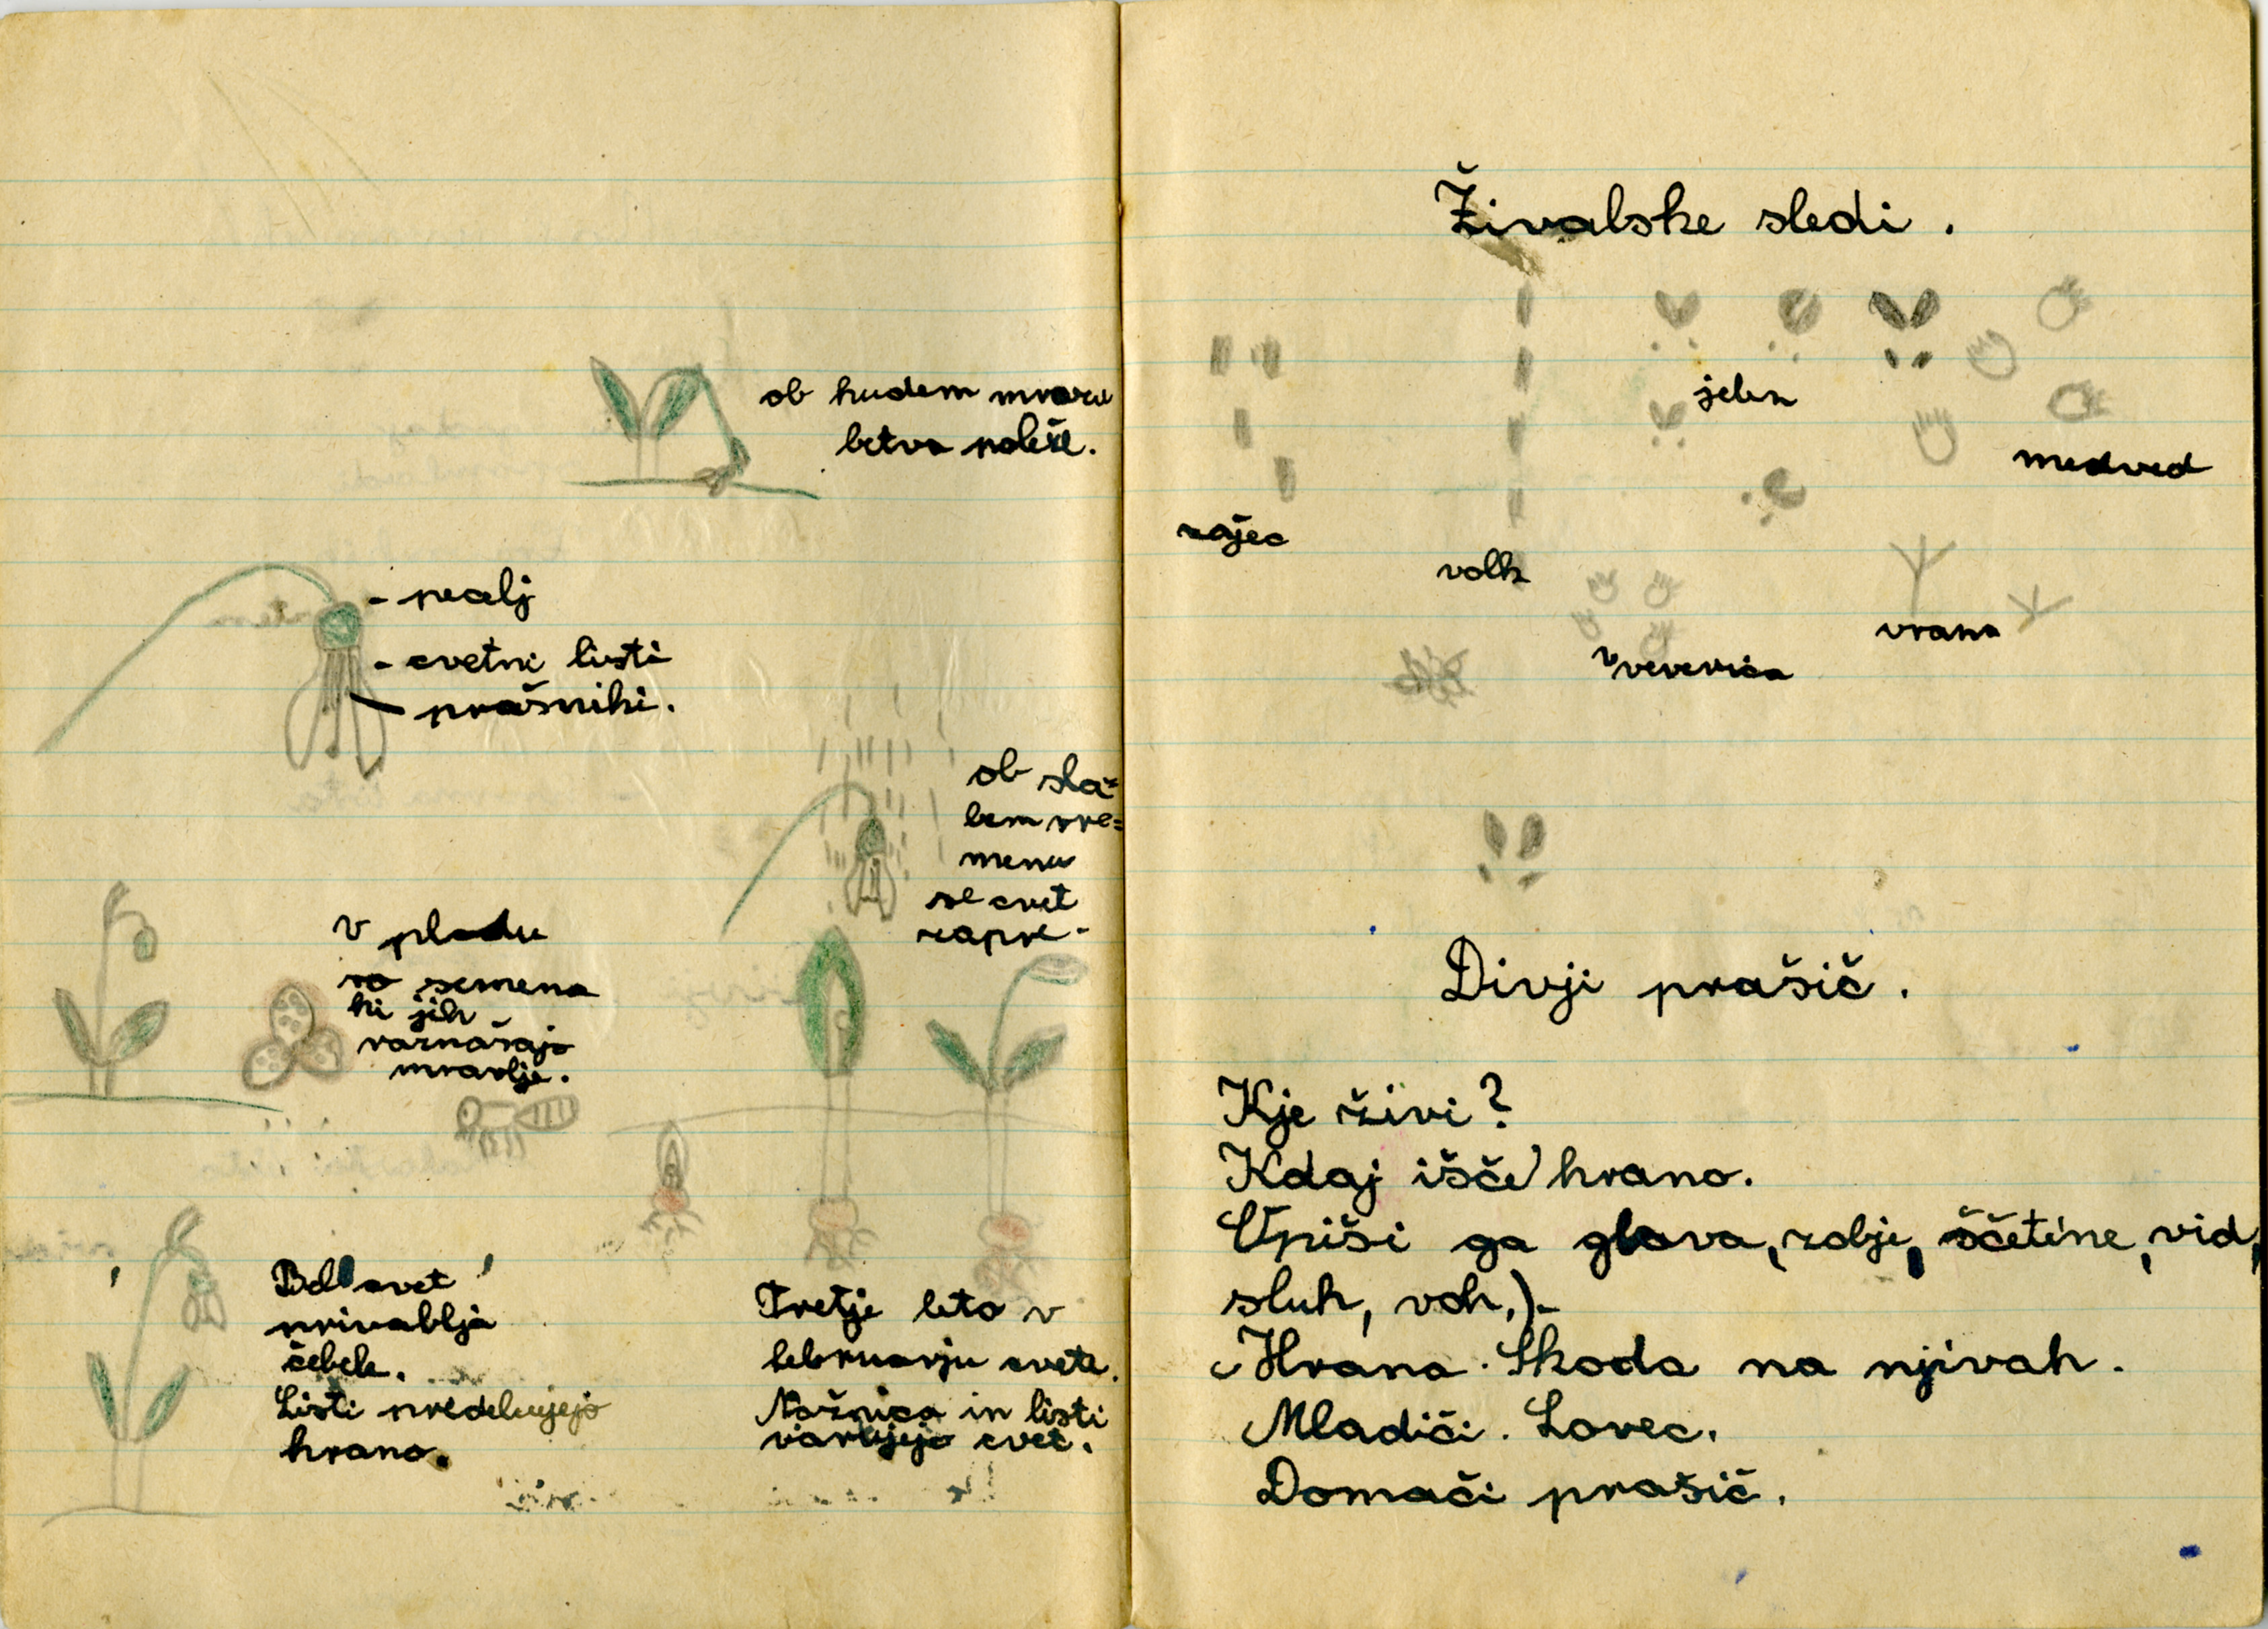 ob hudem mrazu
betva poleže.
- pecelj
- cvetni listi
- prašniki.
ob sla=
bem vre=
menu
se cvet
zapre.
v plodu
so semena
ki jih
raznašajo
mravlje.
Bel cvet
privablja
čebele.
Listi predelujejo
hrano.
Tretje leto v
februarju cvete.
Nožnica in listi
varujejo cvet.
Živalske sledi.
jelen
medved
zajec
volk
vrana
veverica
Divji prašič.
Kje živi?
Kdaj išče hrano.
Opiši ga glava, zobje, ščetine, vid,
sluh, voh,).
Hrana. Škoda na njivah.
Mladiči. Lovec.
Domači prašič.